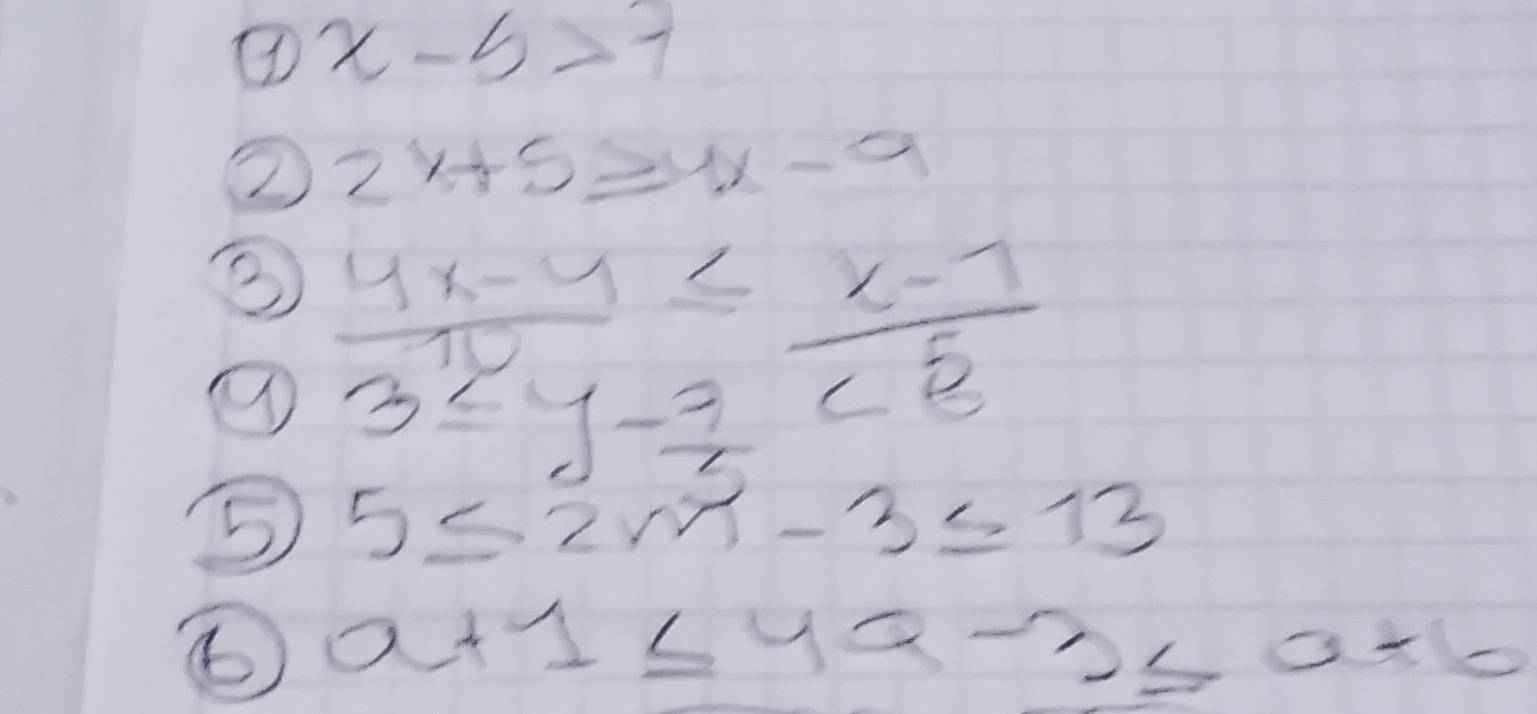 ① x - 5 > 7
② 2x + 5 ≥ 4x - 9
③ (4x - 4)/10 ≤ (x - 1)/5
④ 3 ≤ y - 7/5 <
⑤ 5 ≤ 2m - 3 ≤ 13
⑥ a + 1 ≤ 4a - 3 ≤ a + 6